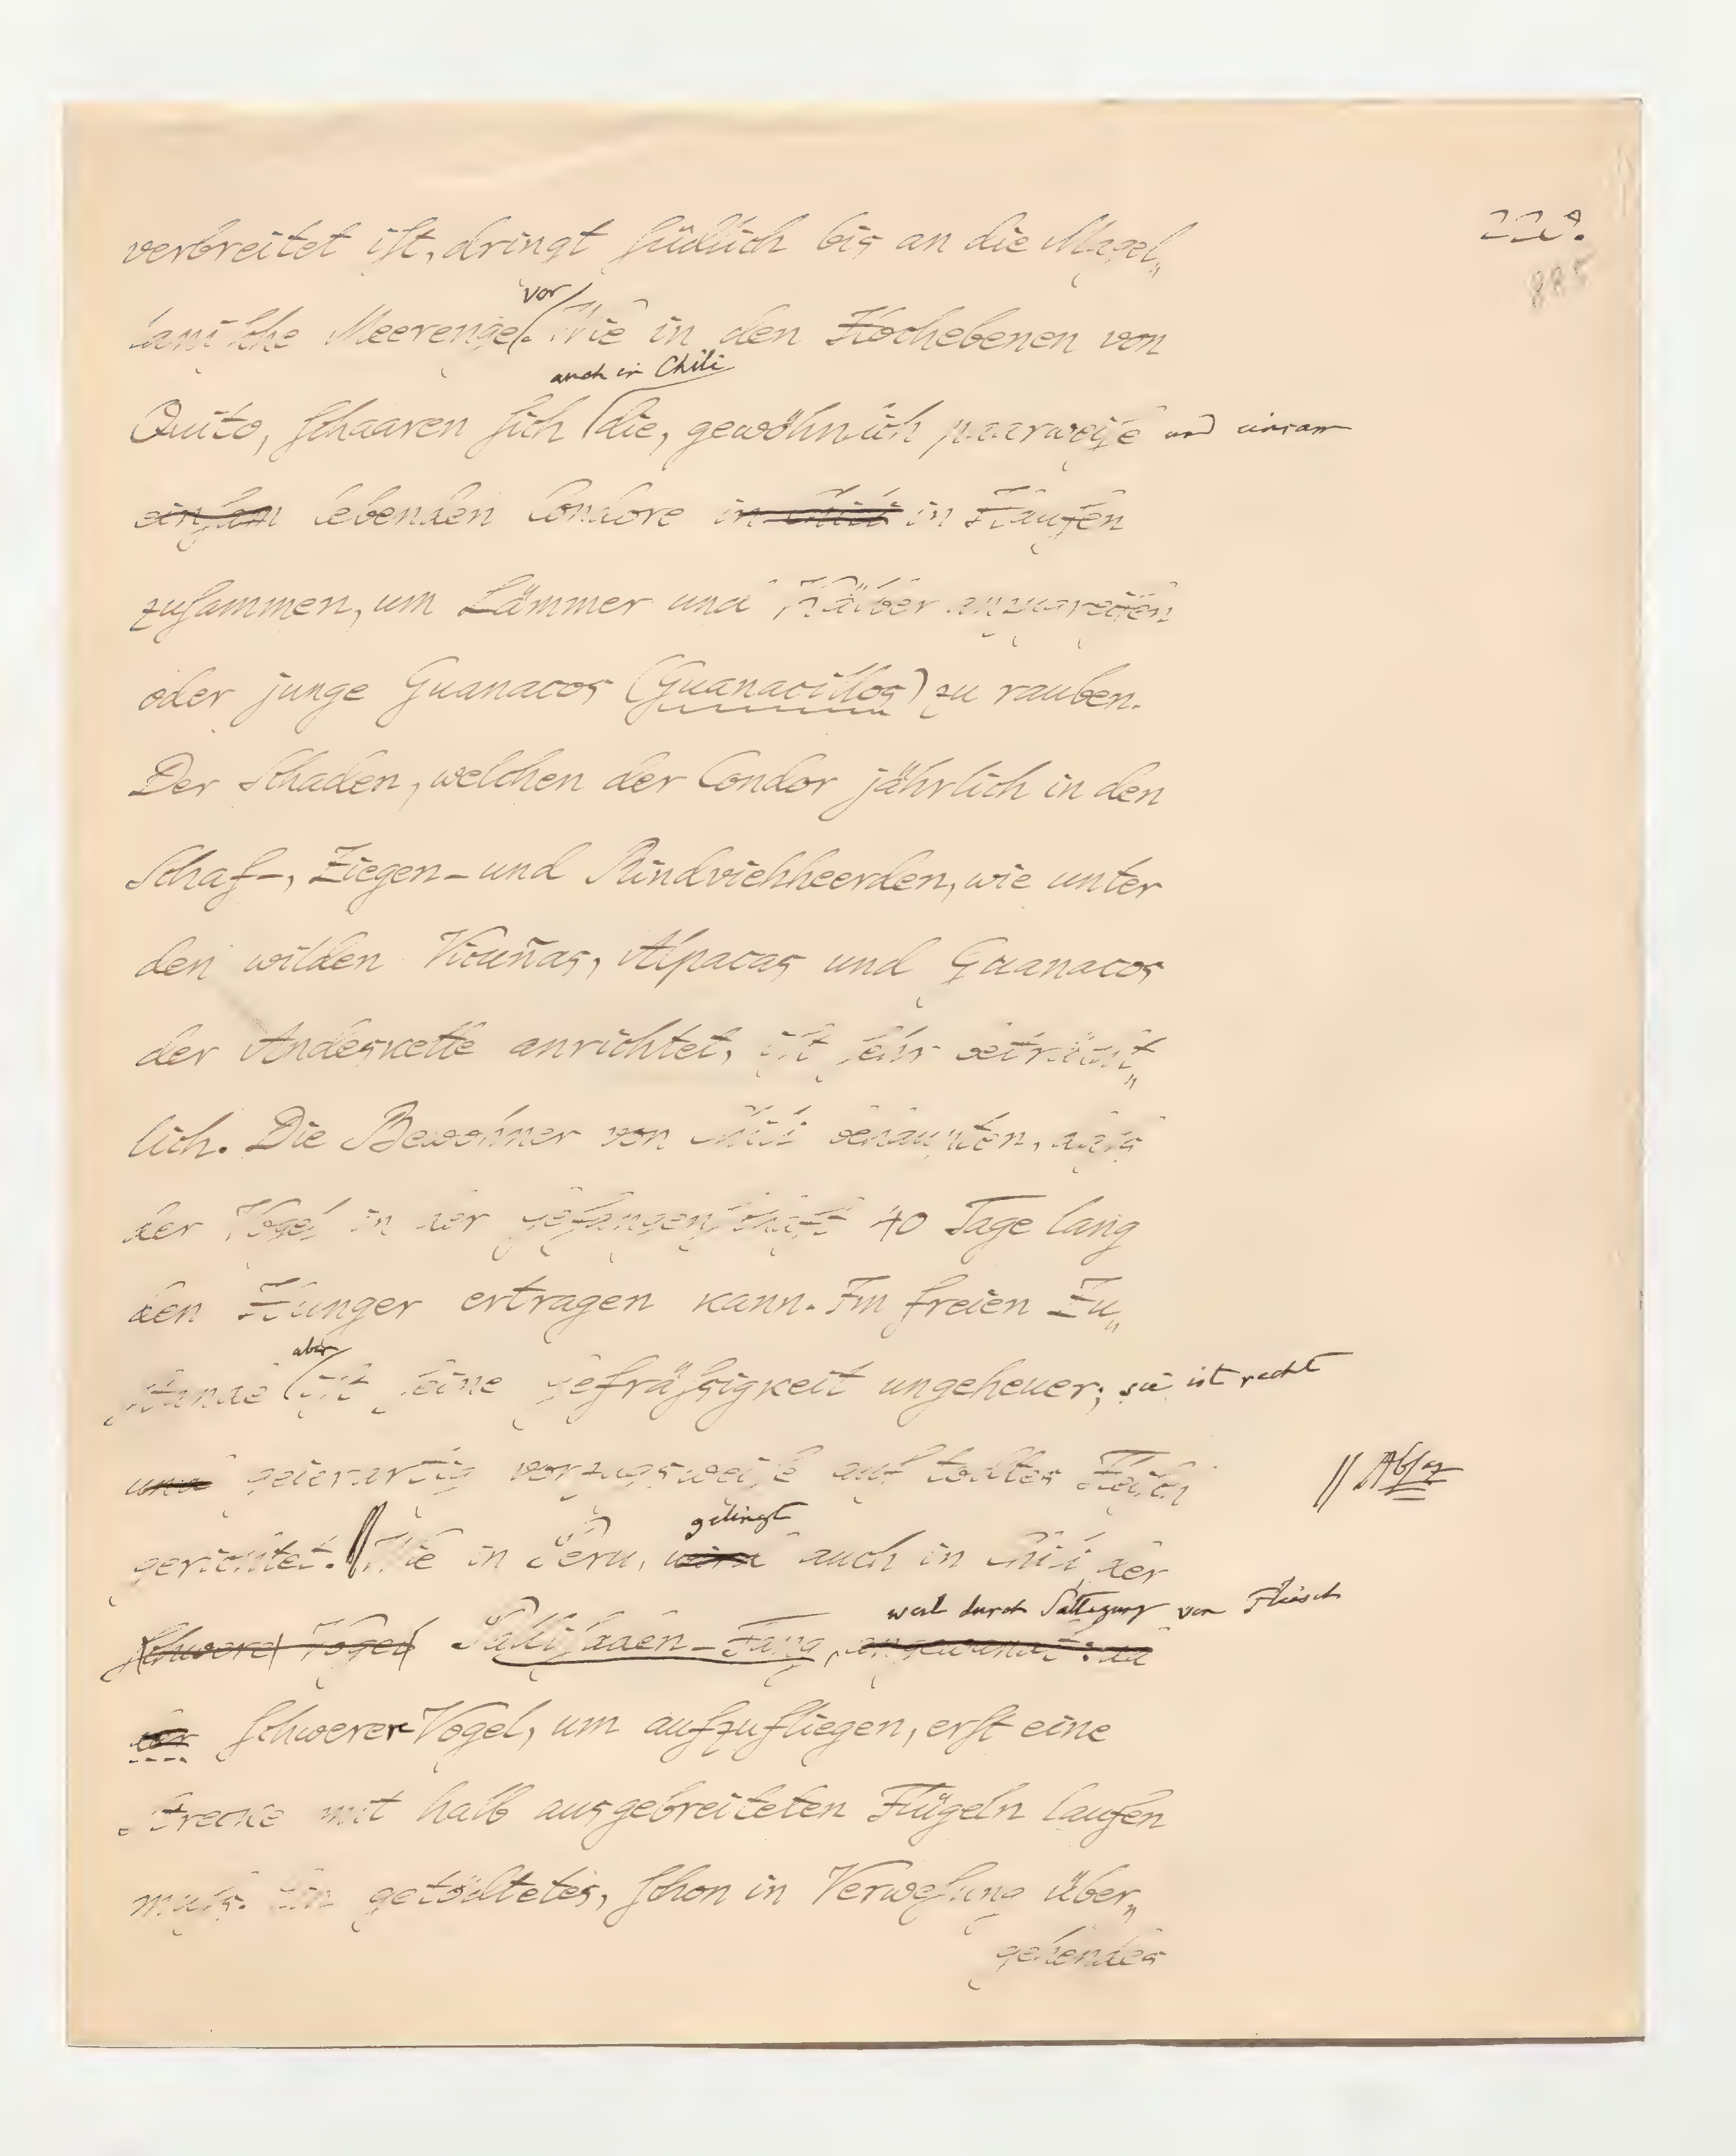 verbreitet iſt, dringt ſüdlich bis an die Magel„
laniſche Meerenge vor. Wie in den Hochebenen von
Quito, ſchaaren ſich auch in Chili die, gewöhnlich paarweiſe und einsam
einſam lebenden Condore in Chili in Haufen
zuſammen, um Lämmer und Kälber anzugreifen
oder junge Guanacos (Guanacillos) zu rauben.
Der Schaden, welchen der Condor jährlich in den
Schaf-, Ziegen- und Rindviehheerden, wie unter
den wilden Vicuñas, Alpacas und Guanacos
der Andeskette anrichtet, iſt ſehr beträcht„
lich. Die Bewohner von Chili behaupten, daſs
der Vogel in der Gefangenſchaft 40 Tage lang
den Hunger ertragen kann. Im freien Zu„
ſtande aber iſt ſeine Gefräſsigkeit ungeheuer; sie ist recht
und geierartig vorzugsweiſe auf todtes Fleiſch
gerichtet. // Wie in Peru, wird gelingt auch in Chili der // Abſaz
ſchwere Vogel Palliſaden-Fang, angewandt: da weil durch Sättigung von Fleisch
der ſchwerer Vogel, um aufzufliegen, erſt eine
Strecke mit halb ausgebreiteten Flügeln laufen
muſs. Ein getödtetes, ſchon in Verweſung über„
gehendes